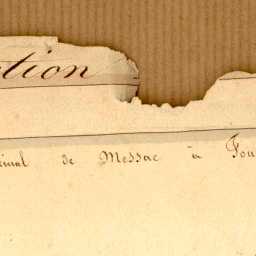 ction
cinal de Messac à Fou